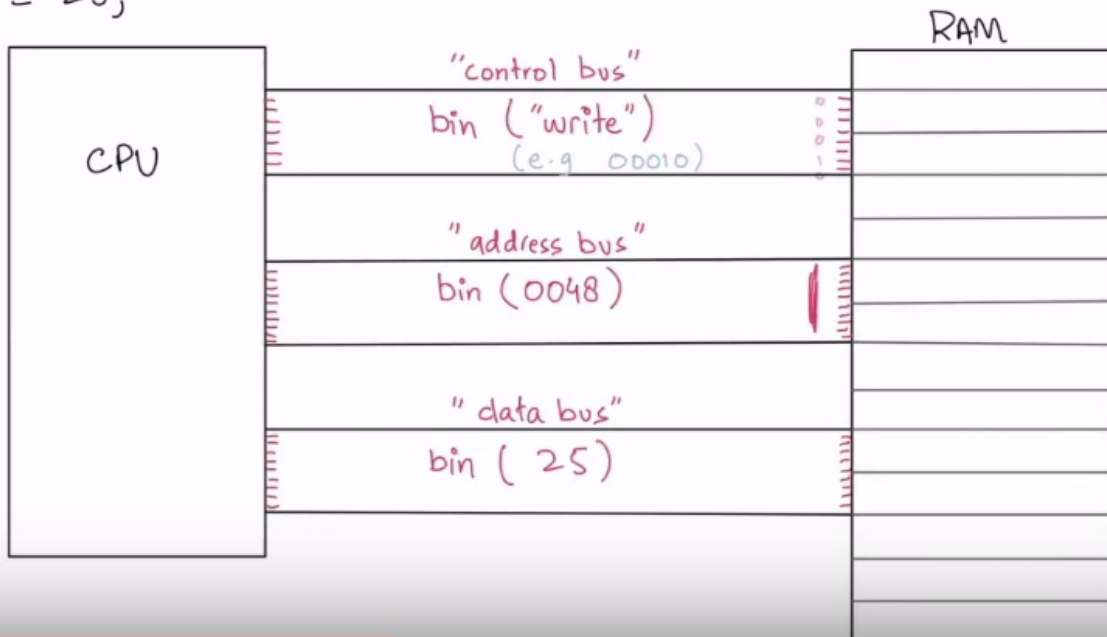 = 25;
RAM
CPU
"control bus"
bin ("write")
(e.g 00010)
0
0
0
1
0
"address bus"
bin (0048)
"data bus"
bin ( 25)